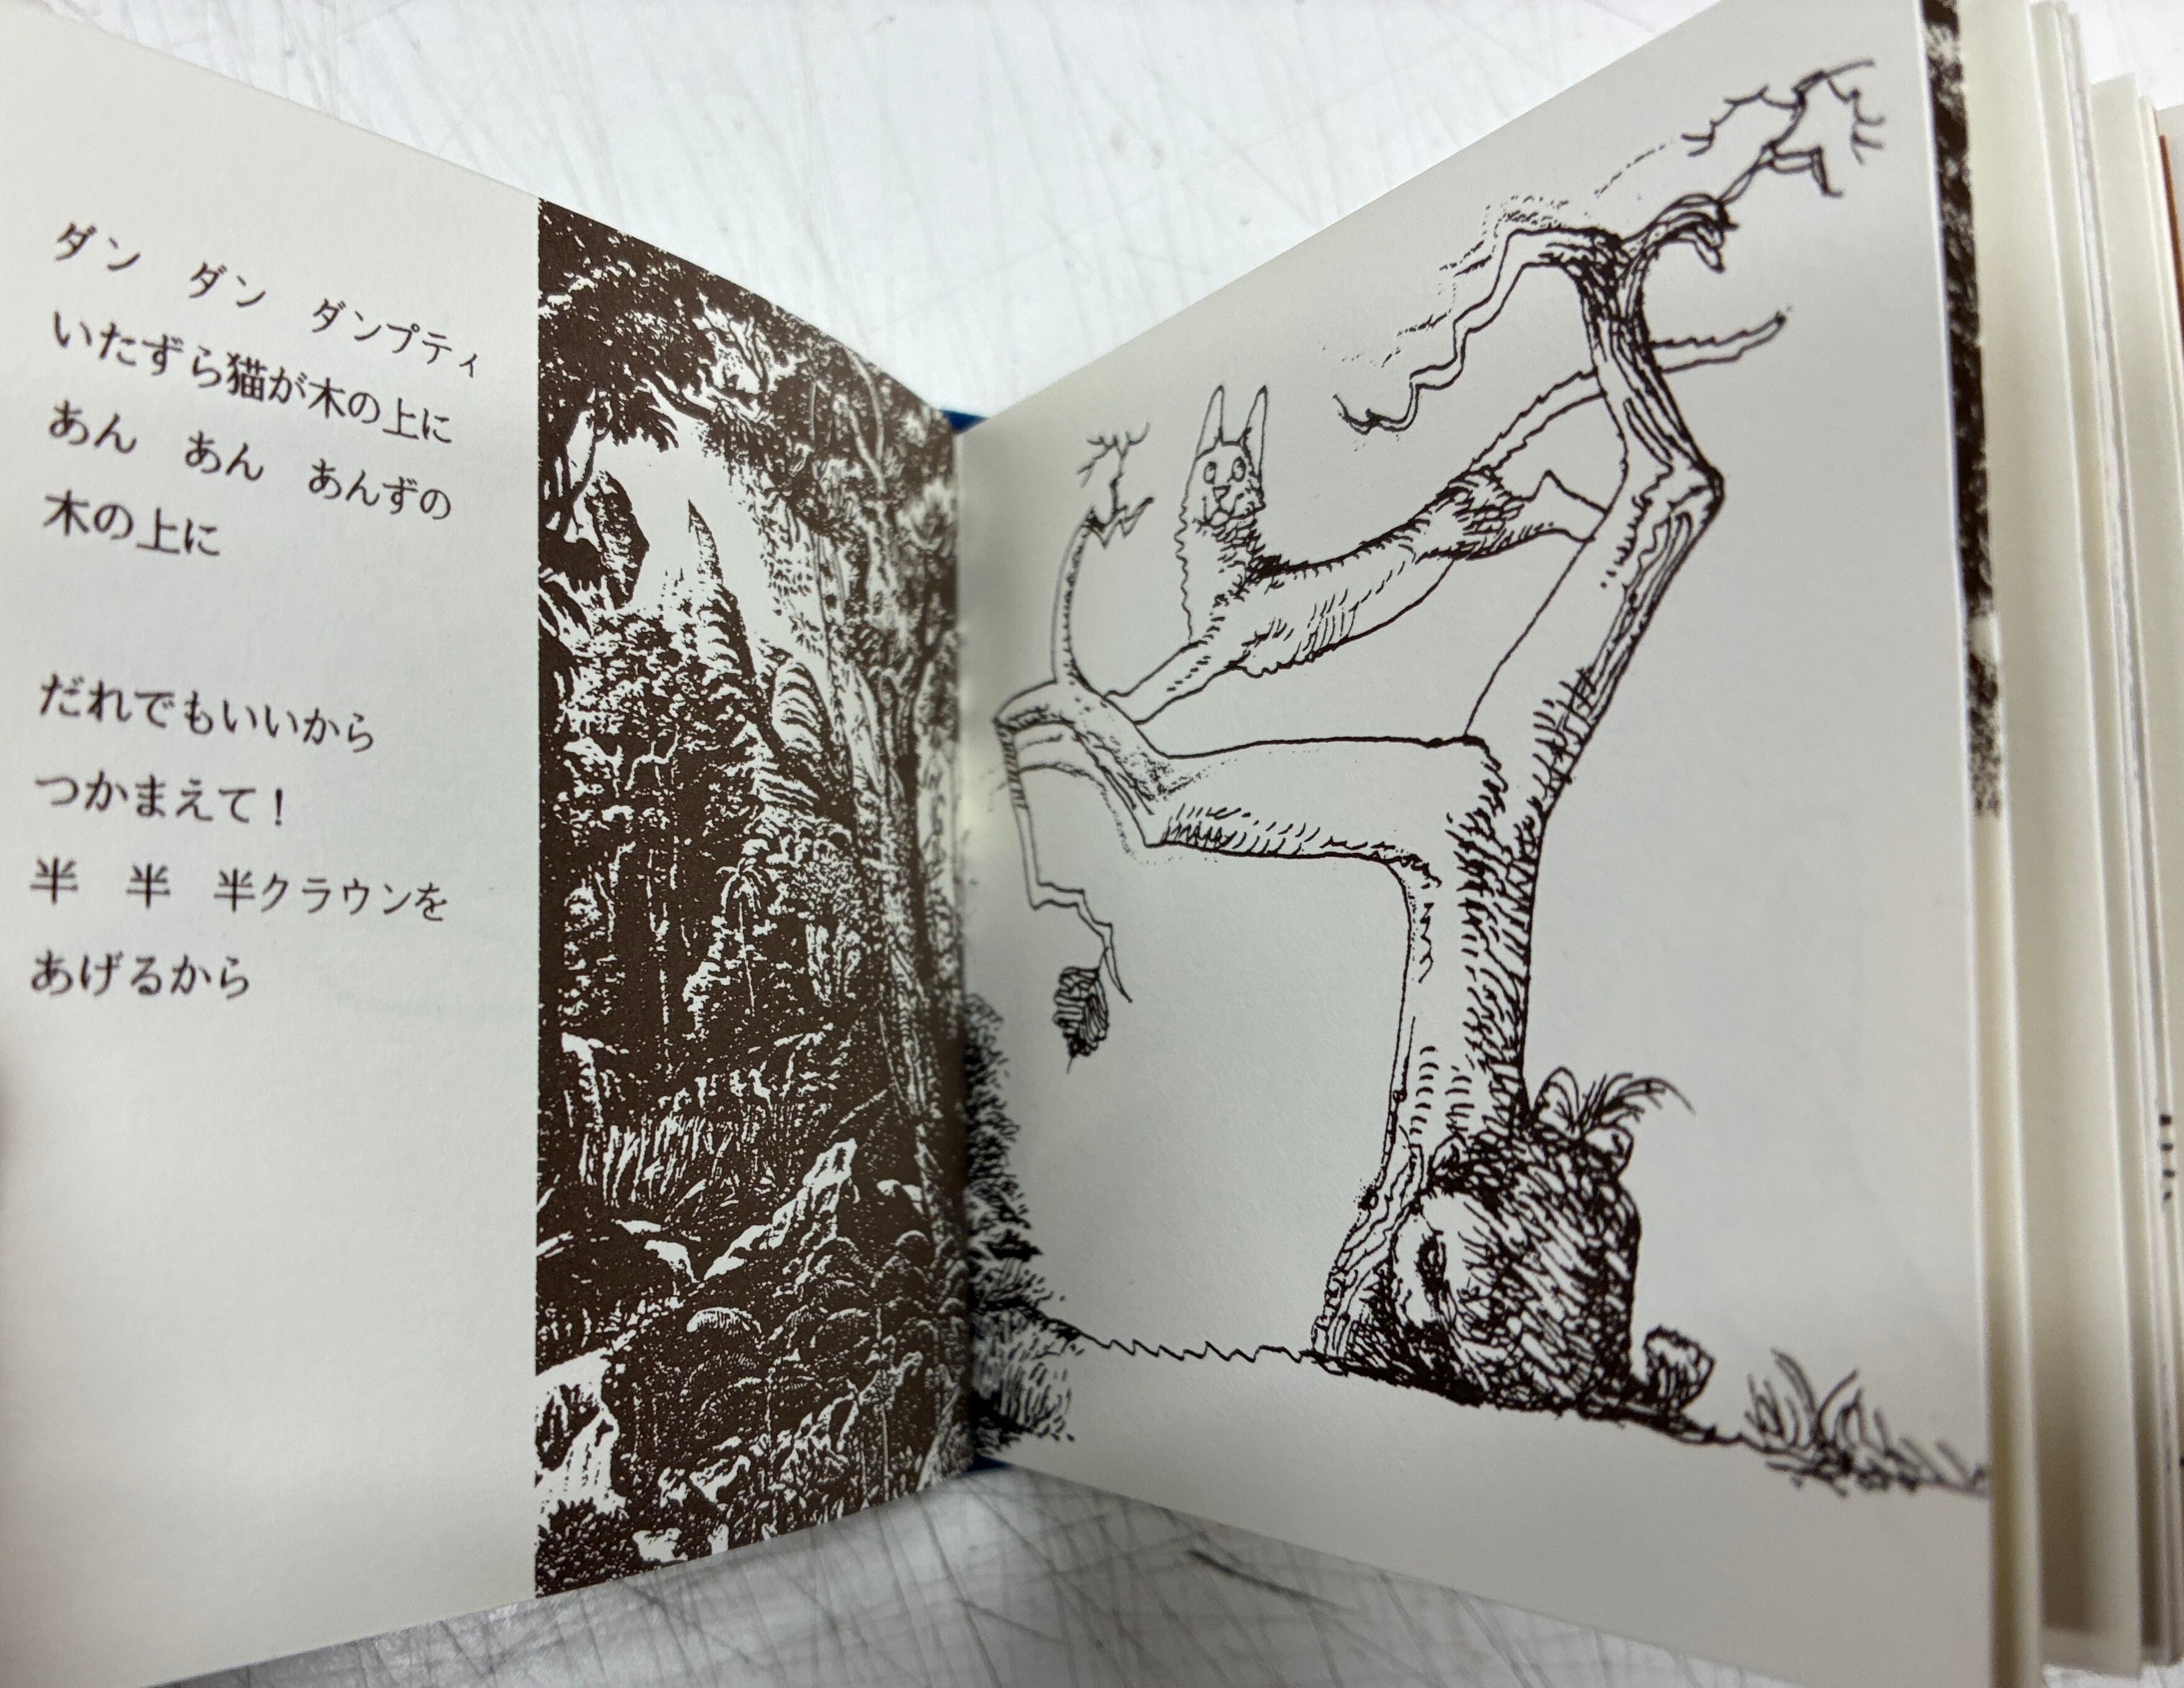 ダン　ダン　ダンプティ
いたずら猫が木の上に
あん　あん　あんずの
木の上に
だれでもいいから
つかまえて！
半　半　半クラウンを
あげるから